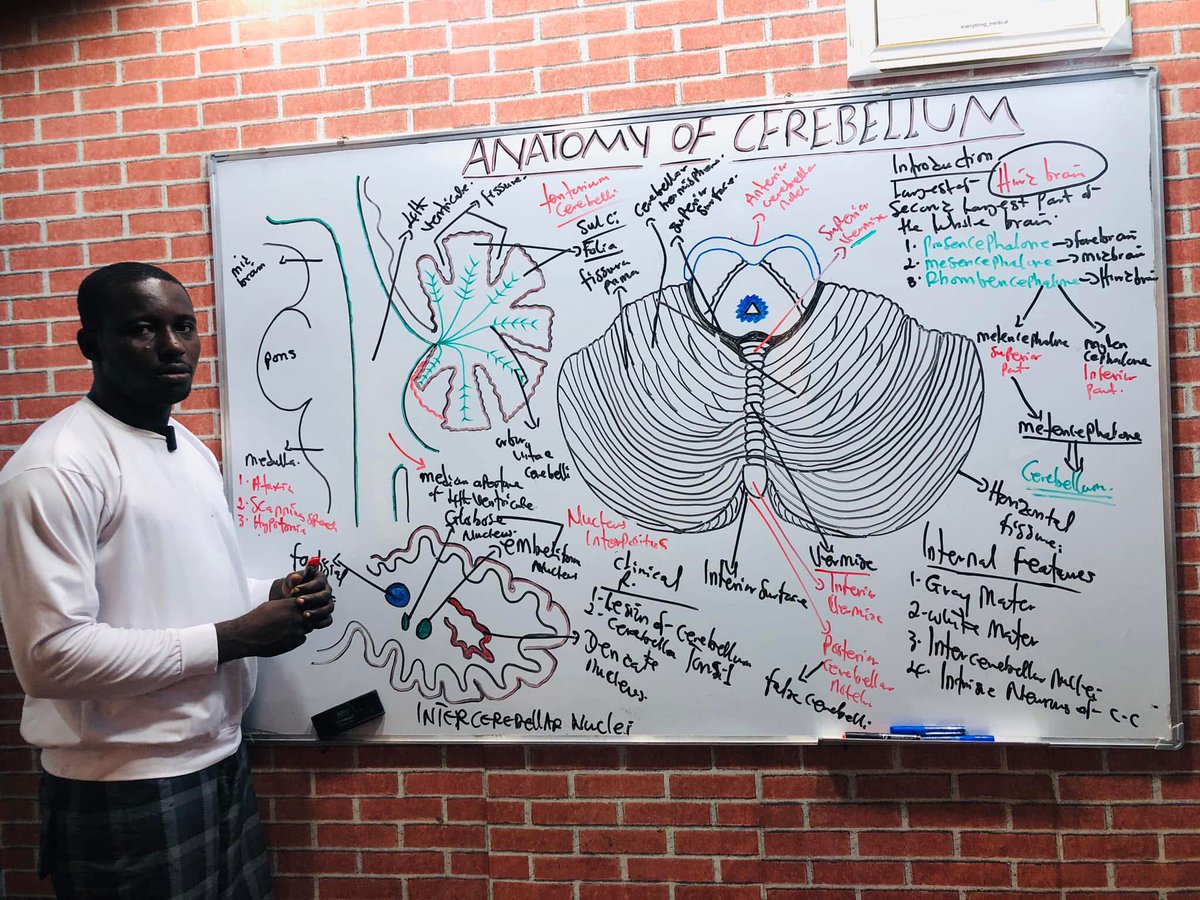 everything_medical
ANATOMY OF CEREBELLUM
Introduction
Largest of Hind brain
Second largest part of
the whole brain.
1. Prosencephalone → forebrain
2. mesencephalone → midbrain
3. Rhombencephalone → Hindbrain
metencephalone
Superior
part
myelen
cephalone
Inferior
part.
metencephalone
Cerebellum.
mid
brain
pons
medulla.
1. Ataxia
2. Scanning Speech
3. Hypotonia
4th
ventricule.
fissure.
tentorium
cerebelli
Sulci
Folia
fissura
prima
Cerebellar
hemisphere
superior
surface.
Anterior
cerebella
notch
Superior
Vermixe
arbor
vitae
cerebelli
median aperture
of 4th ventricule
Globose
Nucleus.
embelifom
nucleus
Nucleus
Interpositus
Dendate
nucleus.
INTERCEREBELLAR Nuclei
clinical
R.
1. Lesion of cerebellum
2. Cerebella Tonsil
Inferior Surface
Vermixe
Inferior
Vermixe
Posterior
Cerebellar
Notch.
false cerebelli.
Horizontal
fissure.
Internal Features
1. Gray Mater
2. white Mater
3. Intercerebellar Nuclei
4. Intrisic Neurons of C-C